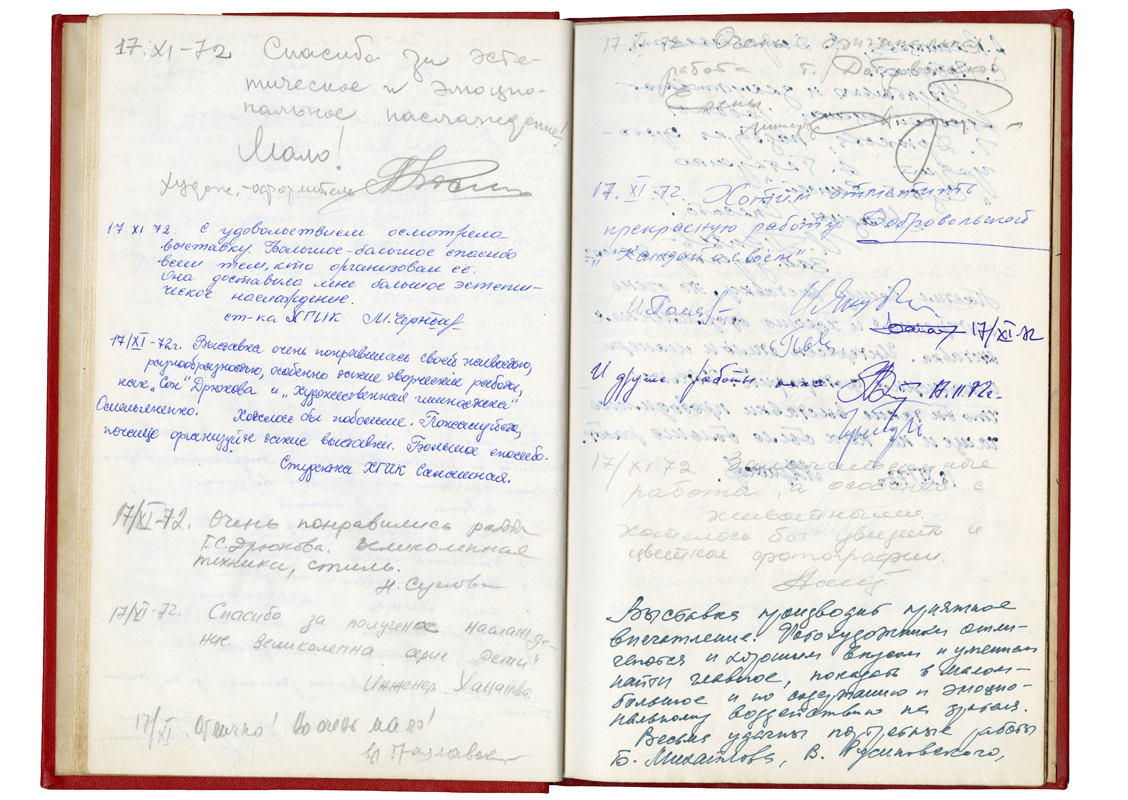 17.XI-72 Спасибо за эсте-
тическое и эмоцио-
нальное наслаждение!
Мало!
Худож.-оформитель
17.XI 72. С удовольствием осмотрела
выставку. Большое-большое спасибо
всем тем, кто организовал её.
Она доставила мне большое эстети-
ческое наслаждение.
ст-ка ХГИК М.
17/XI-72г. Выставка очень понравилась своей живостью,
разнообразностью, особенно такие творческие работы,
как „Сон" Дрюкова и „Художественная гимнастика"
Хотелось бы побольше. Пожалуйста,
почаще организуйте такие выставки. Большое спасибо.
Студентка ХГИК
17/XI-72. Очень понравились работы
Г.С. Дрюкова. Великолепная
техника, стиль.
Н. Суслова
17/XI-72. Спасибо за полученое наслажде-
ние великолепна серия детей
Инженер
17/XI. Отлично! Но очень мало!
вр
17.XI-72 Очень оригинальная
работа т. Добровольской
17.XI-72. Хотим отметить
прекрасную работу Добровольской
17/XI-72
И другие работы 17.11.72г.
17/XI 72 Замечательные
работы, а особенно с
животными.
Хотелось бы увидеть и
цветные фотографии.
Выставка производит приятное
впечатление. Фотохудожники отли-
чаются и хорошим вкусом и умением
найти главное, показать в малом-
большое и по содержанию и эмоцио-
нальному воздействию на зрителя.
Весьма удачны портретные работы
Б. Михайлова, В.